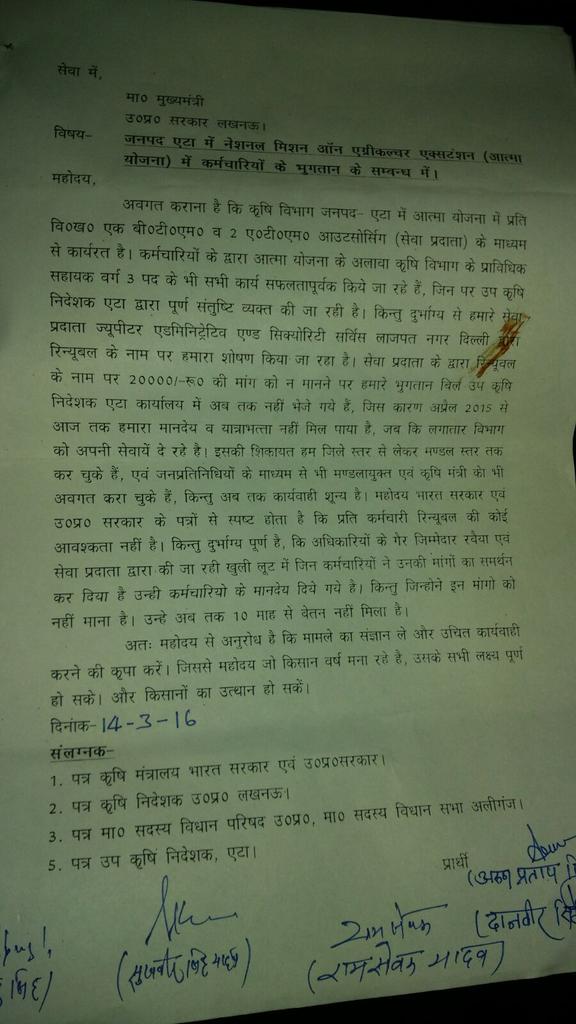 सेवा में,
मा0 मुख्यमंत्री
उ0प्र0 सरकार लखनऊ।
विषय- जनपद एटा में नेशनल मिशन ऑन एग्रीकल्चर एक्सटंशन (आत्मा
योजना) में कर्मचारियों के भुगतान के सम्बन्ध में।
महोदय,
अवगत कराना है कि कृषि विभाग जनपद- एटा में आत्मा योजना में प्रति
वि0ख0 एक बी0टी0एम0 व 2 ए0टी0एम0 आउटसोर्सिग (सेवा प्रदाता) के माध्यम
से कार्यरत है। कर्मचारियों के द्वारा आत्मा योजना के अलावा कृषि विभाग के प्राविधिक
सहायक वर्ग 3 पद के भी सभी कार्य सफलतापूर्वक किये जा रहे हैं, जिन पर उप कृषि
निदेशक एटा द्वारा पूर्ण संतुष्टि व्यक्त की जा रही है। किन्तु दुर्भाग्य से हमारे सेवा
प्रदाता ज्यूपीटर एडमिनिट्रेटिव एण्ड सिक्योरिटी सर्विस लाजपत नगर दिल्ली द्वारा
रिन्यूबल के नाम पर हमारा शोषण किया जा रहा है। सेवा प्रदाता के द्वारा रिन्यूवल
के नाम पर 20000/-रू0 की मांग को न मानने पर हमारे भुगतान बिल उप कृषि
निदेशक एटा कार्यालय में अब तक नहीं भेजे गये हैं, जिस कारण अप्रैल 2015 से
आज तक हमारा मानदेय व यात्राभत्ता नहीं मिल पाया है, जब कि लगातार विभाग
को अपनी सेवायें दे रहे है। इसकी शिकायत हम जिले स्तर से लेकर मण्डल स्तर तक
कर चुके हैं, एवं जनप्रतिनिधियों के माध्यम से भी मण्डलायुक्त एवं कृषि मंत्री को भी
अवगत करा चुके हैं, किन्तु अब तक कार्यवाही शून्य है। महोदय भारत सरकार एवं
उ0प्र0 सरकार के पत्रों से स्पष्ट होता है कि प्रति कर्मचारी रिन्यूबल की कोई
आवश्कता नहीं है। किन्तु दुर्भाग्य पूर्ण है, कि अधिकारियों के गेर जिम्मेदार रवैया एवं
सेवा प्रदाता द्वारा की जा रही खुली लूट में जिन कर्मचारियों ने उनकी मांगों का समर्थन
कर दिया है उन्ही कर्मचारियो के मानदेय दिये गये है। किन्तु जिन्होने इन मांगो को
नहीं माना है। उन्हे अब तक 10 माह से वेतन नहीं मिला है।
अतः महोदय से अनुरोध है कि मामले का संज्ञान ले और उचित कार्यवाही
करने की कृपा करें। जिससे महोदय जो किसान वर्ष मना रहे है, उसके सभी लक्ष्य पूर्ण
हो सके। और किसानों का उत्थान हो सकें।
दिनांक- 14-3-16
संलग्नक-
1. पत्र कृषि मंत्रालय भारत सरकार एवं उ0प्र0सरकार।
2. पत्र कृषि निदेशक उ0प्र0 लखनऊ।
3. पत्र मा0 सदस्य विधान परिषद उ0प्र0, मा0 सदस्य विधान सभा अलीगंज।
5. पत्र उप कृषि निदेशक, एटा।
प्रार्थी
(अरुण प्रताप
(दानवीर सिंह
रामसेवक
(रामसेवक यादव)
सिंह)